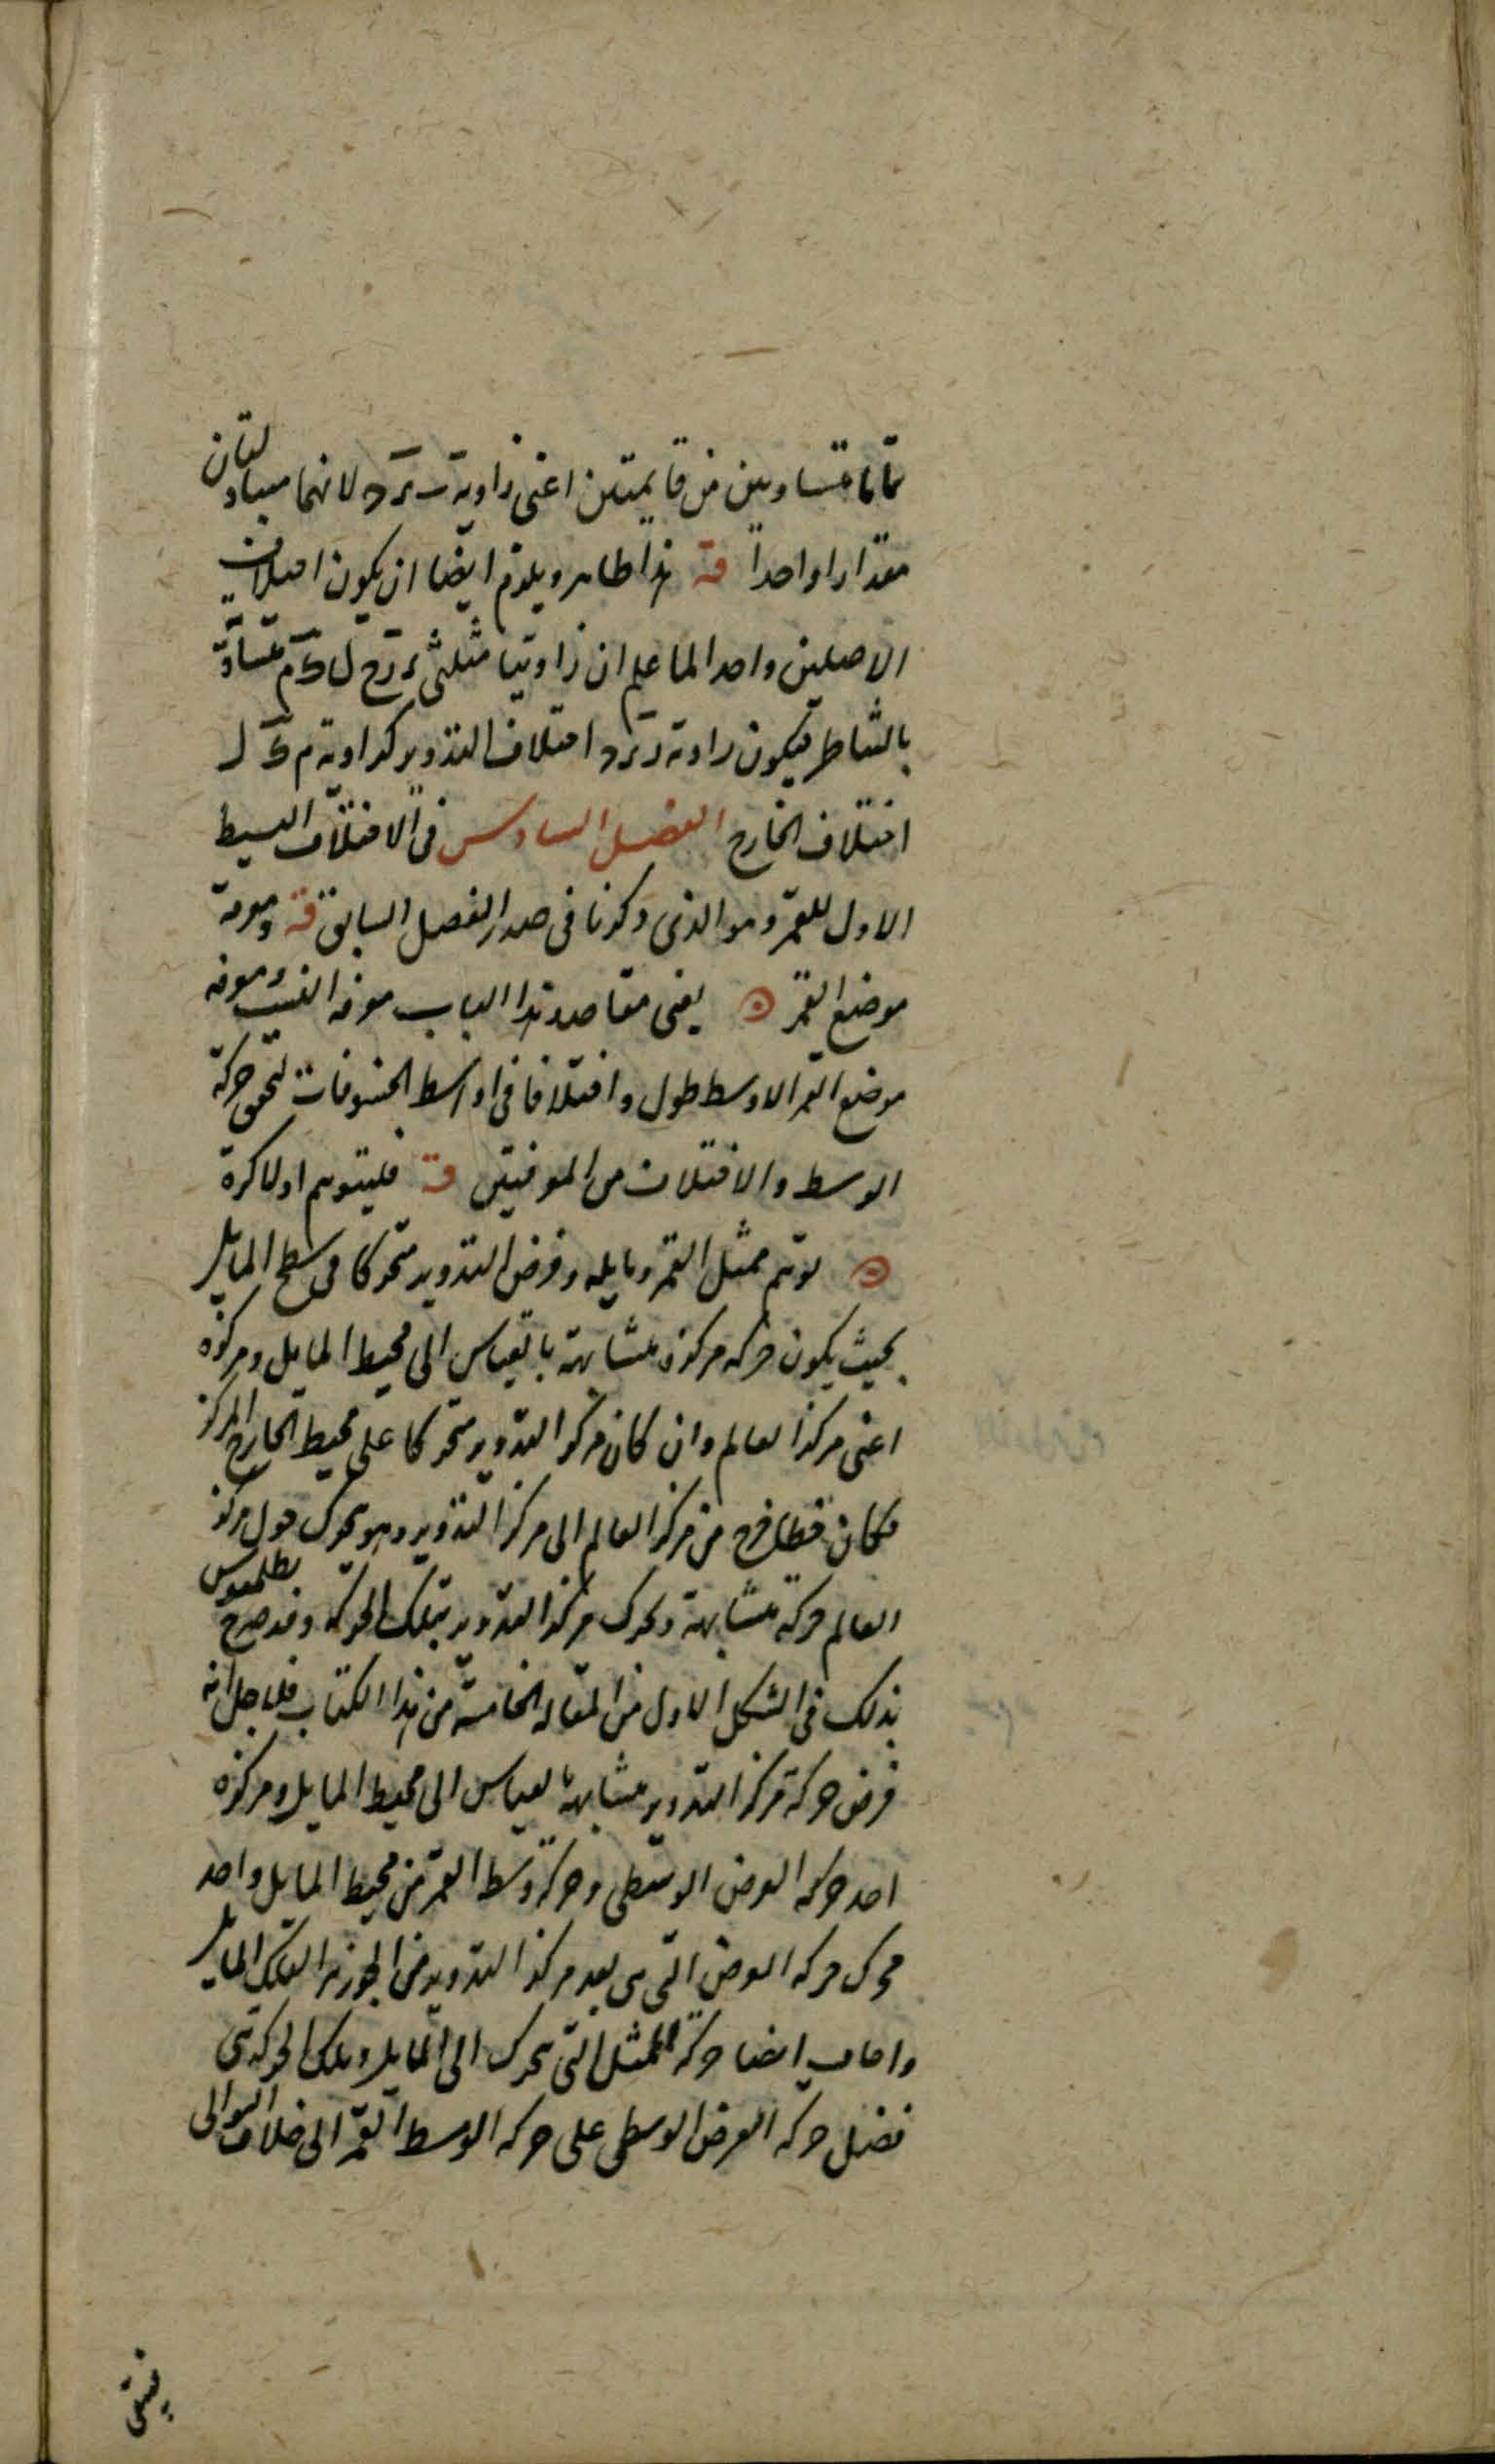 تماما متساويين من قايمتين اعنى زاوية ب ز د لانهما متبادلتان
مقدارا واحدا قه هذا ظاهر ويلزم ايضا ان يكون اختلاف
الاصلين واحدا لما علم ان زاويتا مثلثى ز ح ل ك م متساوية
بالتناظر فيكون زاوية د ز ح اختلاف التدوير كزاوية م ك ل
اختلاف الخارج الفصل السادس فى الاختلاف البسيط
الاول للقمر وهو الذى ذكرنا فى صدر الفصل السابق قه ومعرفة
موضع القمر يعنى مقاصد هذا الباب معرفة النسب ومعرفة
موضع القمر الاوسط طول واختلافا فى اواسط الخسوفات لتحقق حركة
الوسط والاختلاف من الموضعين قه فليتوهم اولا كرة
توهم ممثل القمر ومايله وفرض التدوير متحركا فى سطح المايل
بحيث يكون حركه مركزه متشابهة بالقياس الى محيط المايل ومركزه
اعنى مركز العالم وان كان مركز التدوير متحركا على محيط الخارج المركز
فكان خطا خرج من مركز العالم الى مركز التدوير وهو يتحرك حول مركز
العالم حركة متشابهة ويحرك مركز التدوير بتلك الحركة وقد صرح بطلميوس
بذلك فى الشكل الاول من المقالة الخامسة من هذا الكتاب فلاجل انه
فرض حركة مركز التدوير متشابهة بالقياس الى محيط المايل ومركزه
اخذ حركة العرض الوسطى وحركة وسط القمر من محيط المايل واخذ
محرك حركه العرض التى هى بعد مركز التدوير من الجوزهر الفلك المايل
واصاب ايضا حركة الممثل التى تحرك الى المايل وتلك الحركة هى
فضل حركه العرض الوسطى على حركه الوسط القمر الى خلاف التوالى